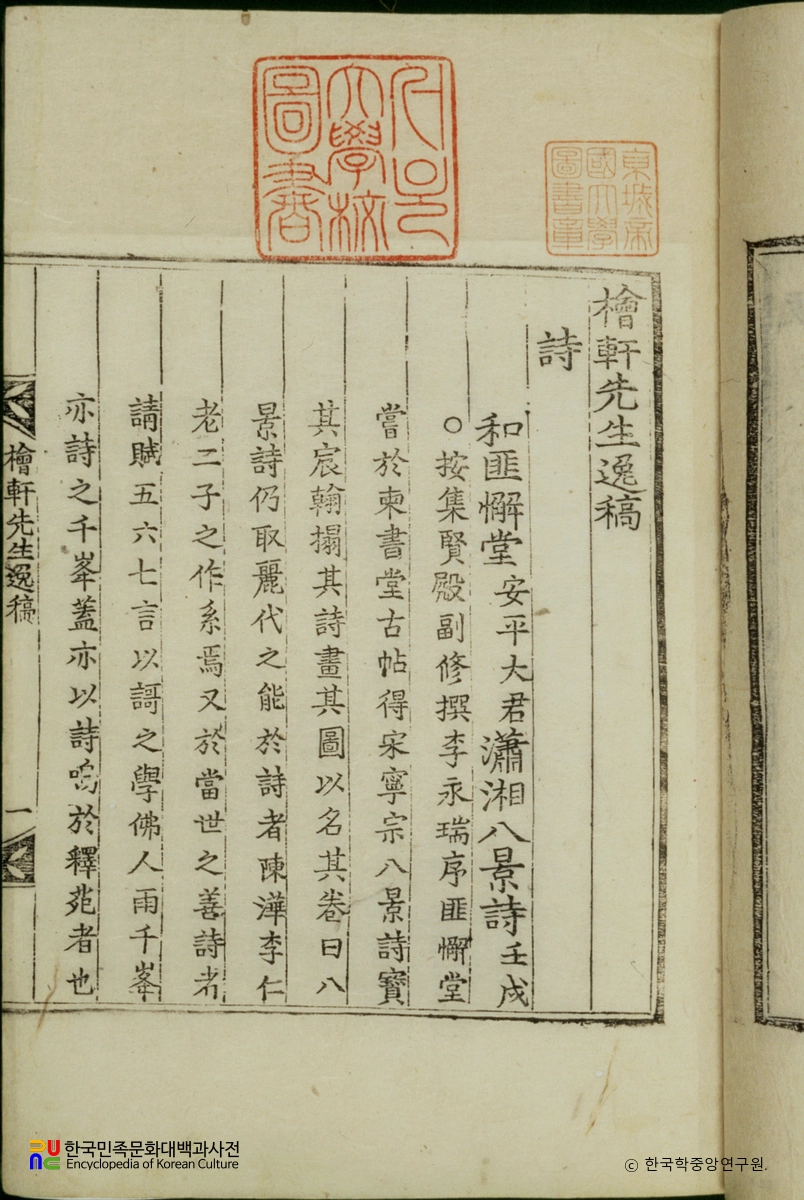 檜軒先生逸稿
詩
和匪懈堂安平大君瀟湘八景詩壬戌
○按集賢殿副修撰李永瑞序匪懈堂
嘗於東書堂古帖得宋寧宗八景詩寶
其宸翰搨其詩畫其圖以名其卷曰八
景詩仍取麗代之能於詩者陳澕李仁
老二子之作系焉又於當世之善詩者
請賦五六七言以謌之學佛人雨千峯
亦詩之千峯蓋亦以詩鳴於釋苑者也
檜軒先生逸稿
一
東城帝
國大學
圖書章
大學校
圖書
한국민족문화대백과사전
Encyclopedia of Korean Culture
ⓒ 한국학중앙연구원.